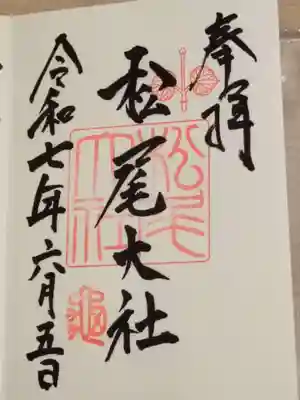 奉拝
松尾大社
令和七年六月五日
松尾大社
亀